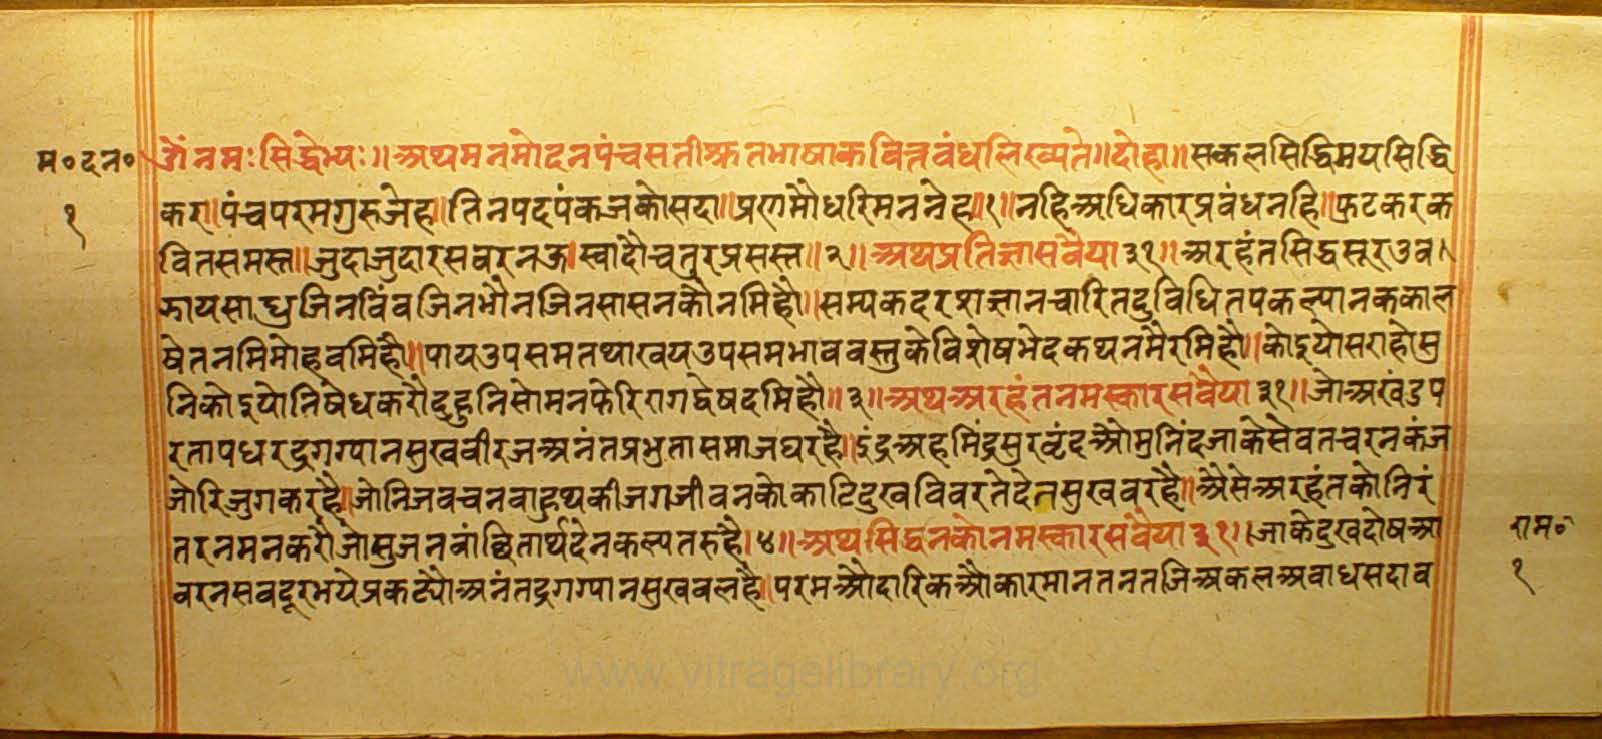 म॰दन॰
१
ॐनमःसिद्धेभ्यः॥अथमनमोदनपंचसतीकृतभाषाकवित्तवंधलिख्यते॥दोहा॥सकलसिद्धिमयसिद्धि
कर॥पंचपरमगुरुजेह॥तिनपदपंकजकोसदा॥प्रणमौधरिमननेह॥१॥नहिअधिकारप्रवंधनहि॥फुटकरक
वितसमस्त॥जुदाजुदारसवरनऊ॥स्वादौचतुरप्रसस्त॥२॥अथप्रतिज्ञासवैया३१॥अरहंतसिद्धसूरउव।
झायसाधुजिनविंवजिनभौनजिनसासनकौनमिहौ॥सम्यकदरशज्ञानचारितदुविधितपकल्यानककाल
षेतनमिमोहवमिहौ॥पायउपसमतथाखयउपसमभाववस्तुकेविशेषभेदकथनमेरमिहौ॥कोइयोसराहोसु
निकोइयोनिषेधकरौदुहुनिसोमनफेरिरागद्वेषदमिहौ॥३॥अथअरहंतनमस्कारसवैया३१॥जोअखंडप
रतापधरद्रगग्यानसुखवीरजअनंतप्रभुतासमाजधरहै॥इंद्रअहमिंद्रसुरवृंदऔमुनिंदजाकेसेवतचरनकंज
जोरिजुगकरहै॥जोनिजवचनवाहुथकीजगजीवनकोकाटिदुखविवरतेदेतसुखवरहै॥औसेअरहंतकोनिरं
तरनमनकरौजोसुजनवांछितार्थदेनकल्पतरुहै।४॥अथसिद्धनकोनमस्कारसवैया३१॥जाकेदुखदोषआ
वरनसवदूरभयेप्रकट्यौअनंतद्रगग्यानसुखवलहै॥परमऔदारिकऔकारमानतनतजिअकलअवाधसदाव
राम॰
१
www.vitragelibrary.org